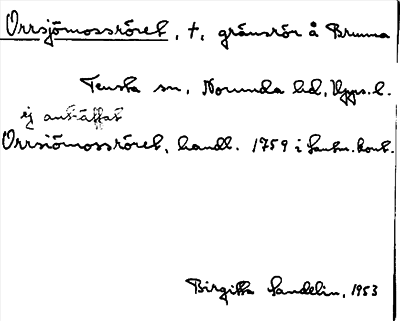 Orrsjömossröret, †, gränsrör å Brunna
Tensta sn, Norunda hd, Upps. l.
ej anträffat
Orrsiömossröret, handl. 1759 i lantm. kont.
Birgitta Sandelin, 1953